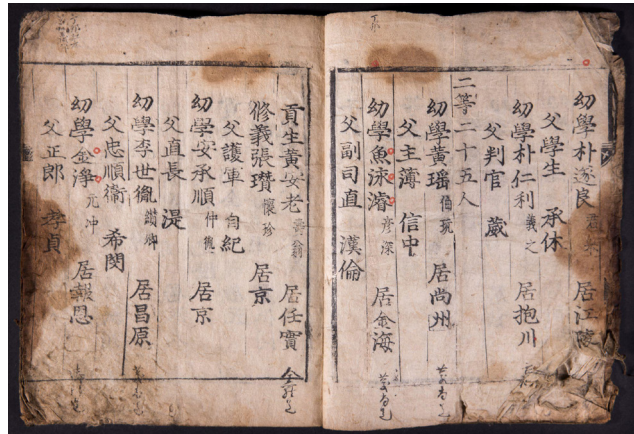 幼學朴遂良 君擧 居江陵
父學生 承休
幼學朴仁利 義之 居抱川
父判官 葳
二等二十五人
幼學黃瑶 伯玩 居尚州
父主簿 信中
幼學魚泳濬 彦深 居金海
父副司直 漢倫
貢生黃安老 居任實
修義張瓚 懷珍 居京
父護軍 自紀
幼學安承順 仲 居京
父直長 湜
幼學李世胤 卿 居昌原
父忠順衛 希閔
幼學金淨 元冲 居報恩
父正郎 孝貞